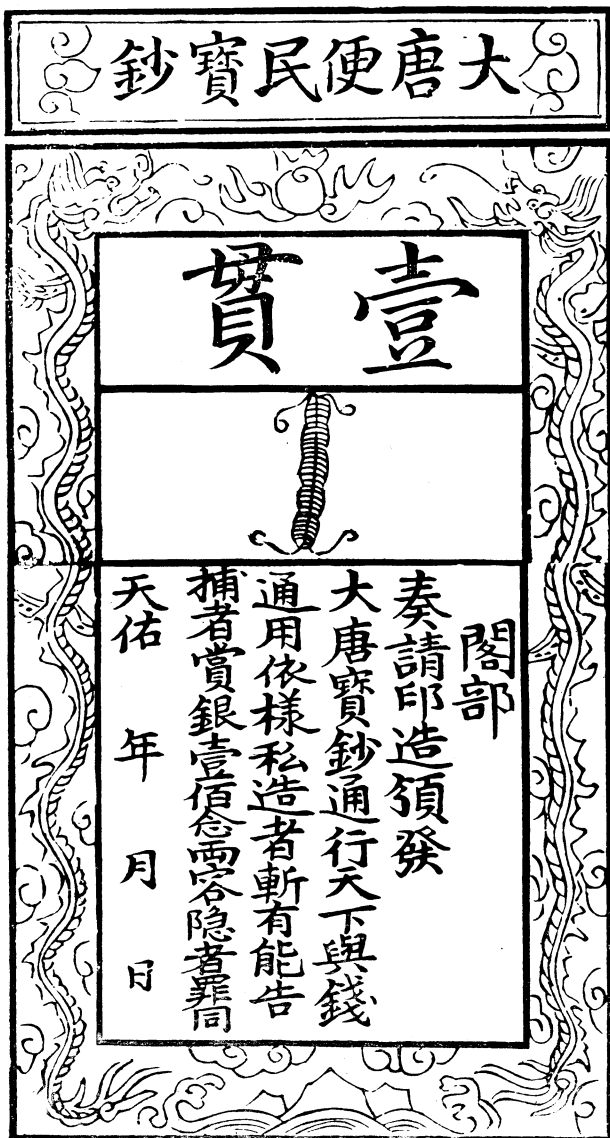 大唐便民寳鈔
壹貫
閣部
奏請印造頒發
大唐寳鈔通行天下與錢
通用依樣私造者斬有能告
捕者賞銀壹佰念兩容隐者罪同
天佑 年 月 日